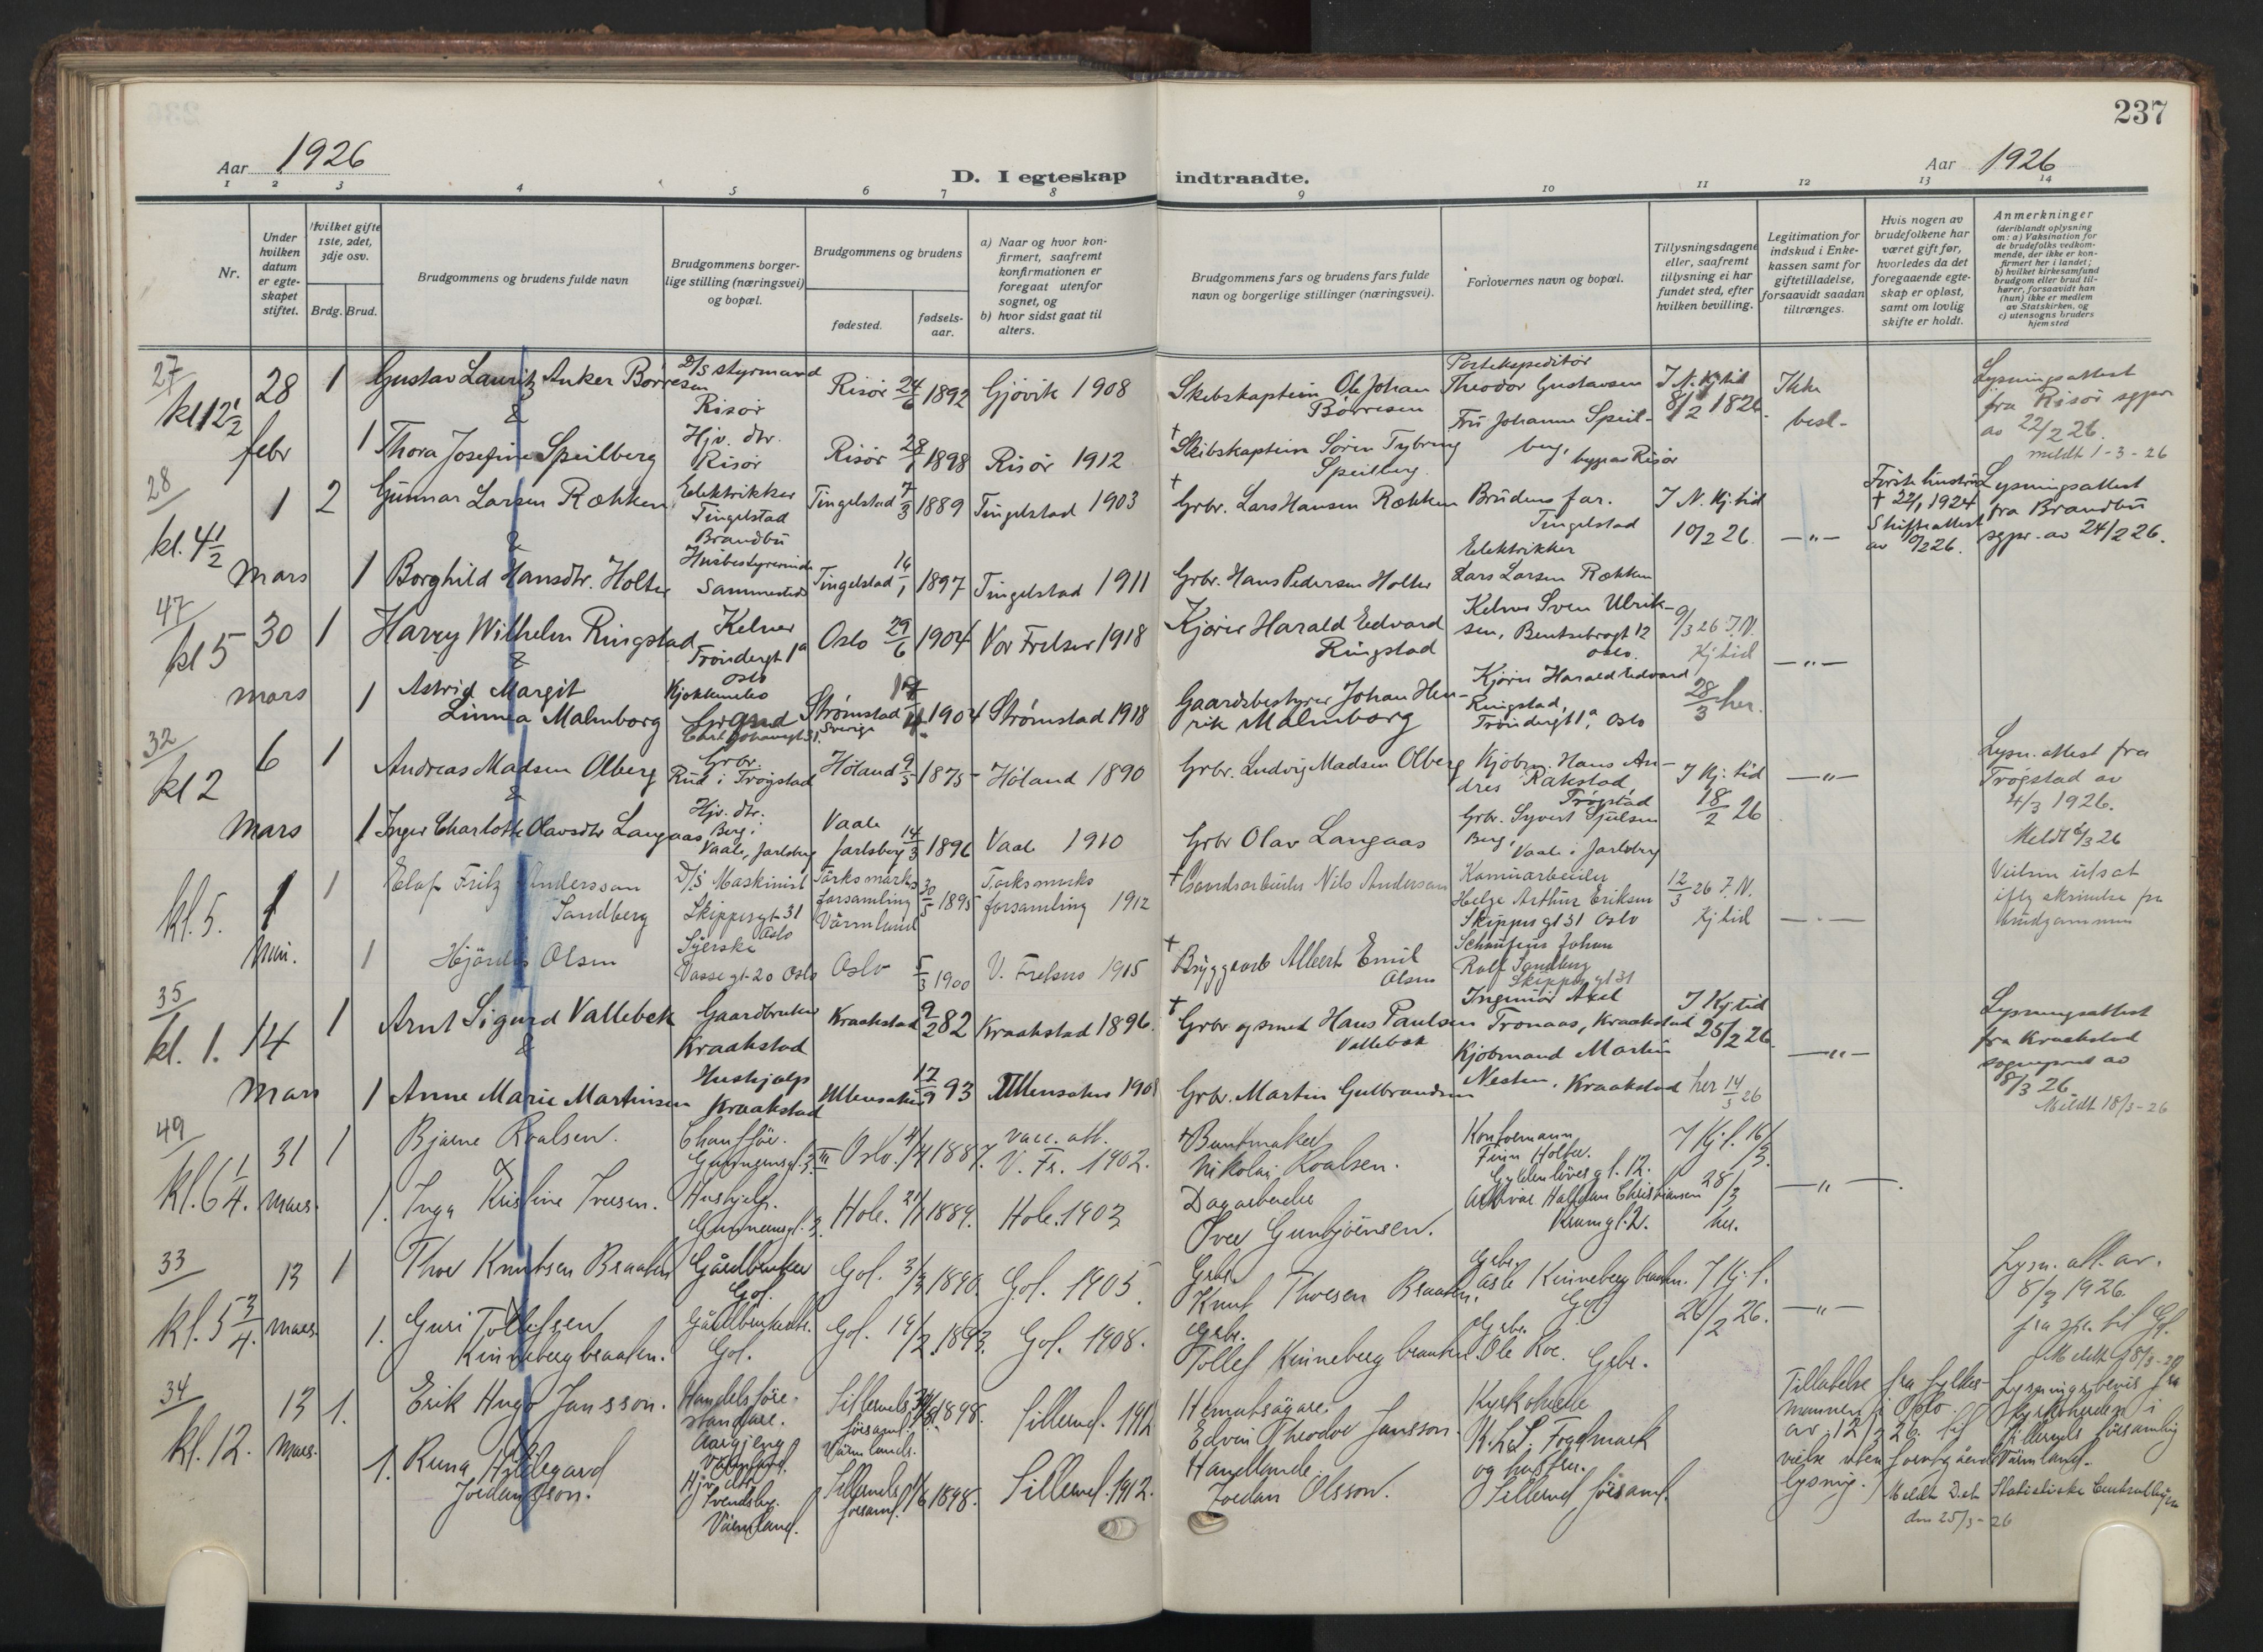 237
Aar 1926
D. I egteskap indtraadte.
Aar 1926
1 2 3 4 5 6 7 8 9 10 11 12 13 14
Nr.
Under hvilken datum er egteskapet stiftet.
Hvilket gifte 1ste, 2det, 3dje osv.
Brdg. Brud.
Brudgommens og brudens fulde navn
Brudgommens borgerlige stilling (næringsvei) og bopæl.
Brudgommens og brudens
fødested.
fødselsaar.
a) Naar og hvor konfirmert, saafremt konfirmationen er foregaat utenfor sognet, og
b) hvor sidst gaat til alters.
Brudgommens fars og brudens fars fulde navn og borgerlige stillinger (næringsvei).
Forlovernes navn og bopæl.
Tillysningsdagene eller, saafremt tillysning ei har fundet sted, efter hvilken bevilling.
Legitimation for indskud i Enkekassen samt for giftetilladelse, forsaavidt saadan tiltrænges.
Hvis nogen av brudefolkene har været gift før, hvorledes da det foregaaende egteskap er opløst, samt om lovlig skifte er holdt.
Anmerkninger
(deriblandt oplysning om: a) Vaksination for de brudefolks vedkommende, der ikke er konfirmert her i landet; b) hvilket kirkesamfund brudgom eller brud tilhører, forsaavidt han (hun) ikke er medlem av Statskirken, og c) utensogns bruders hjemsted
27
kl 12 1/2
28 febr
1 Gustav Lauritz Anker Børresen
&
1 Thora Josefine Speilberg
D/S styrmand
Risør
Hjv. dtr.
Risør
Risør 24/6 1892 Gjøvik 1908
Risør 28/1 1898 Risør 1912
Skibskaptein Ole Johan Børresen
† Skibskaptein Søren Tybring Speilberg.
Postekspeditør
Theodor Gustavsen
Fru Johanne Speilberg, begge av Risør
I N. Kj. tid
8/2 1826.
Ikke
besl.
Lysningsattest
fra Risør sgpr
av 22/2 26.
meldt 1-3-26
28
kl. 4 1/2
1 Mars
2 Gunnar Larsen Rækken
&
1 Borghild Hansdtr. Holter
Elektrikker
Tingelstad
Brandbu
Husbestyrerinde
Sammesteds
Tingelstad 7/3 1889 Tingelstad 1903
Tingelstad 16/1 1897 Tingelstad 1911
† Grbr. Lars Hansen Rækken
Grbr. Hans Pedersen Holter
Brudens far.
Tingelstad
Elektrikker
Lars Larsen Rækken
I N. Kj. tid
10/2 26.
— " —
Første hustru
† 22/1 1924
Skifteattest
av 10/2 26.
Lysningsattest
fra Brandbu
sgpr. av 24/2 26.
47
kl 5
30 mars
1 Harry Wilhelm Ringstad
&
1 Astrid Margit
Linnea Malmborg
Kelner
Trøndergt 1a
Oslo
Grand
Carl Johansgt 31.
Oslo 29/6 1904 Vor Frelser 1918
Strømstad
Sverige
1904 Strømstad 1918
Kjører Harald Edvard
Ringstad
Gaardsbestyrer Johan Henrik Malmborg
Kelner Sven Ulriksen, Bentsebrogt 12
Oslo.
Kjører Harald Edvard
Ringstad,
Trøndergt 1a, Oslo
9/3 26 I. N.
Kj tid
28/3 her.
— " —
32
kl 2
6 Mars
1 Andreas Madsen Olberg
&
1 Inger Charlotte Olavsdtr Langaas
Grbr.
Rud i Trøgstad
Hjv. dtr.
Berg i
Vaale, Jarlsberg
Høland 9/5 1875 Høland 1890
Vaale
Jarlsberg 14/3 1896 Vaale 1910
Grbr. Ludvig Madsen Olberg
Grbr Olav Langaas
Kjøbm. Hans Andres Rakstad,
Trøgstad
Grbr. Syvert
Berg,
Vaale i Jarlsberg
I Kj. tid
18/2 26
— " —
Lysn. attest fra
Trøgstad av
4/3 1926.
Meldt 8/3 26
kl. 5.
1
1 Elof Fritz Andersson
Sandberg
1 Hjördis Olsen
D/S Maskinist
Skippergt 31
Oslo
Syerske
Vossegt 20 Oslo
forsamling
Värmland
30/5 1895
forsamling 1912
Oslo 5/3 1900 V. Frelsers 1915
† Nils Andersson
† Bryggearb Albert Emil
Olsen
Helge Arthur Eriksen
Skippergt 31 Oslo
Johan
Rolf Sandberg
Skippergt 31
12/3 26 I. N.
Kj tid
— " —
Vielsen utsat
brudgommen
35
kl. 1.
14 Mars
1 Arnt Sigurd Vallebek
&
1 Anne Marie Martinsen
Gaardbruker
Kraakstad
Hushjælp
Kraakstad
Kraakstad 9/2 82 Kraakstad 1896.
Ullensaker 17/9 93 Ullensaker 1908
† Grbr og smed Hans Paulsen
Vallebæk
Grbr. Martin Gulbrandsen
Ingeniør Axel
Tronaas, Kraakstad
Kjøbmand Martin
Nesten, Kraakstad
I Kj tid
25/2 26.
her 14/3 26
— " —
Lysningsattest
fra Kraakstad
sogneprest av
8/3 26.
Meldt 18/3-26
49
kl. 6 1/4.
31 mars.
1 Bjarne Roalsen.
&
1. Inga Kristine Iversen.
Chauffør.
Hushjelp.
Oslo. 4/4 1887.
vacc. att.
V. Fr. 1902.
Hole. 21/1 1889. Hole. 1903
† Buntmaker
Nikolai Roalsen.
Dagarbeider
Iver Gunbjörnsen.
Kontormann
Finn Holter.
Gyldenløvesgt. 12.
Halfdan Christiansen
Krumgt. 2.
I Kj. t. 16/3.
28/3
her.
— " —
33
kl. 5 3/4.
13 mars.
1 Thor Knutsen Braaten
1. Guri Tollefsen
Kinnebergbraaten.
Gårdbruker
Gol.
Gol.
Gol. 3/3 1890. Gol. 1905
Gol. 19/2 1893. Gol. 1908.
Grbr.
Knut Thorsen Braaten.
Grbr.
Tollef Kinneberg braaten.
Grbr.
Asle Kinneberg braaten.
Gol
Ole Roe. Grbr.
I Kj. t.
26/2 26.
— " —
Lysn. att. av.
8/3 1926
fra spr. til Gol.
Meldt 18/3-26
34
kl. 12.
13 Mars.
1. Erik Hugo Jansson.
1. Runa Hildegard
Jordansson.
Handelsföreståndare.
Aarjeng
Värmland.
Hjv. dtr.
Svensby.
Värmland.
Sillerud
församl.
Värmland.
1898. Sillerud. 1912
Silleruds
församl. 1/6 1898. Sillerud. 1912.
Hemansägare.
Edvin Theodor Jansson.
Handlande.
Jordan Olsson.
Kyrkoherde
K. L. Fogelmark
og hustru.
Sillerud församl.
Tillatelse fra fylkesmannen i Oslo
av 12/3 26. til
vielse uten foregående
lysning.
Lysningsbevis fra
kyrkoherden i
Silleruds församling
Värmland.
Meldt Det Statistiske Centralbyrå
den 25/3-26